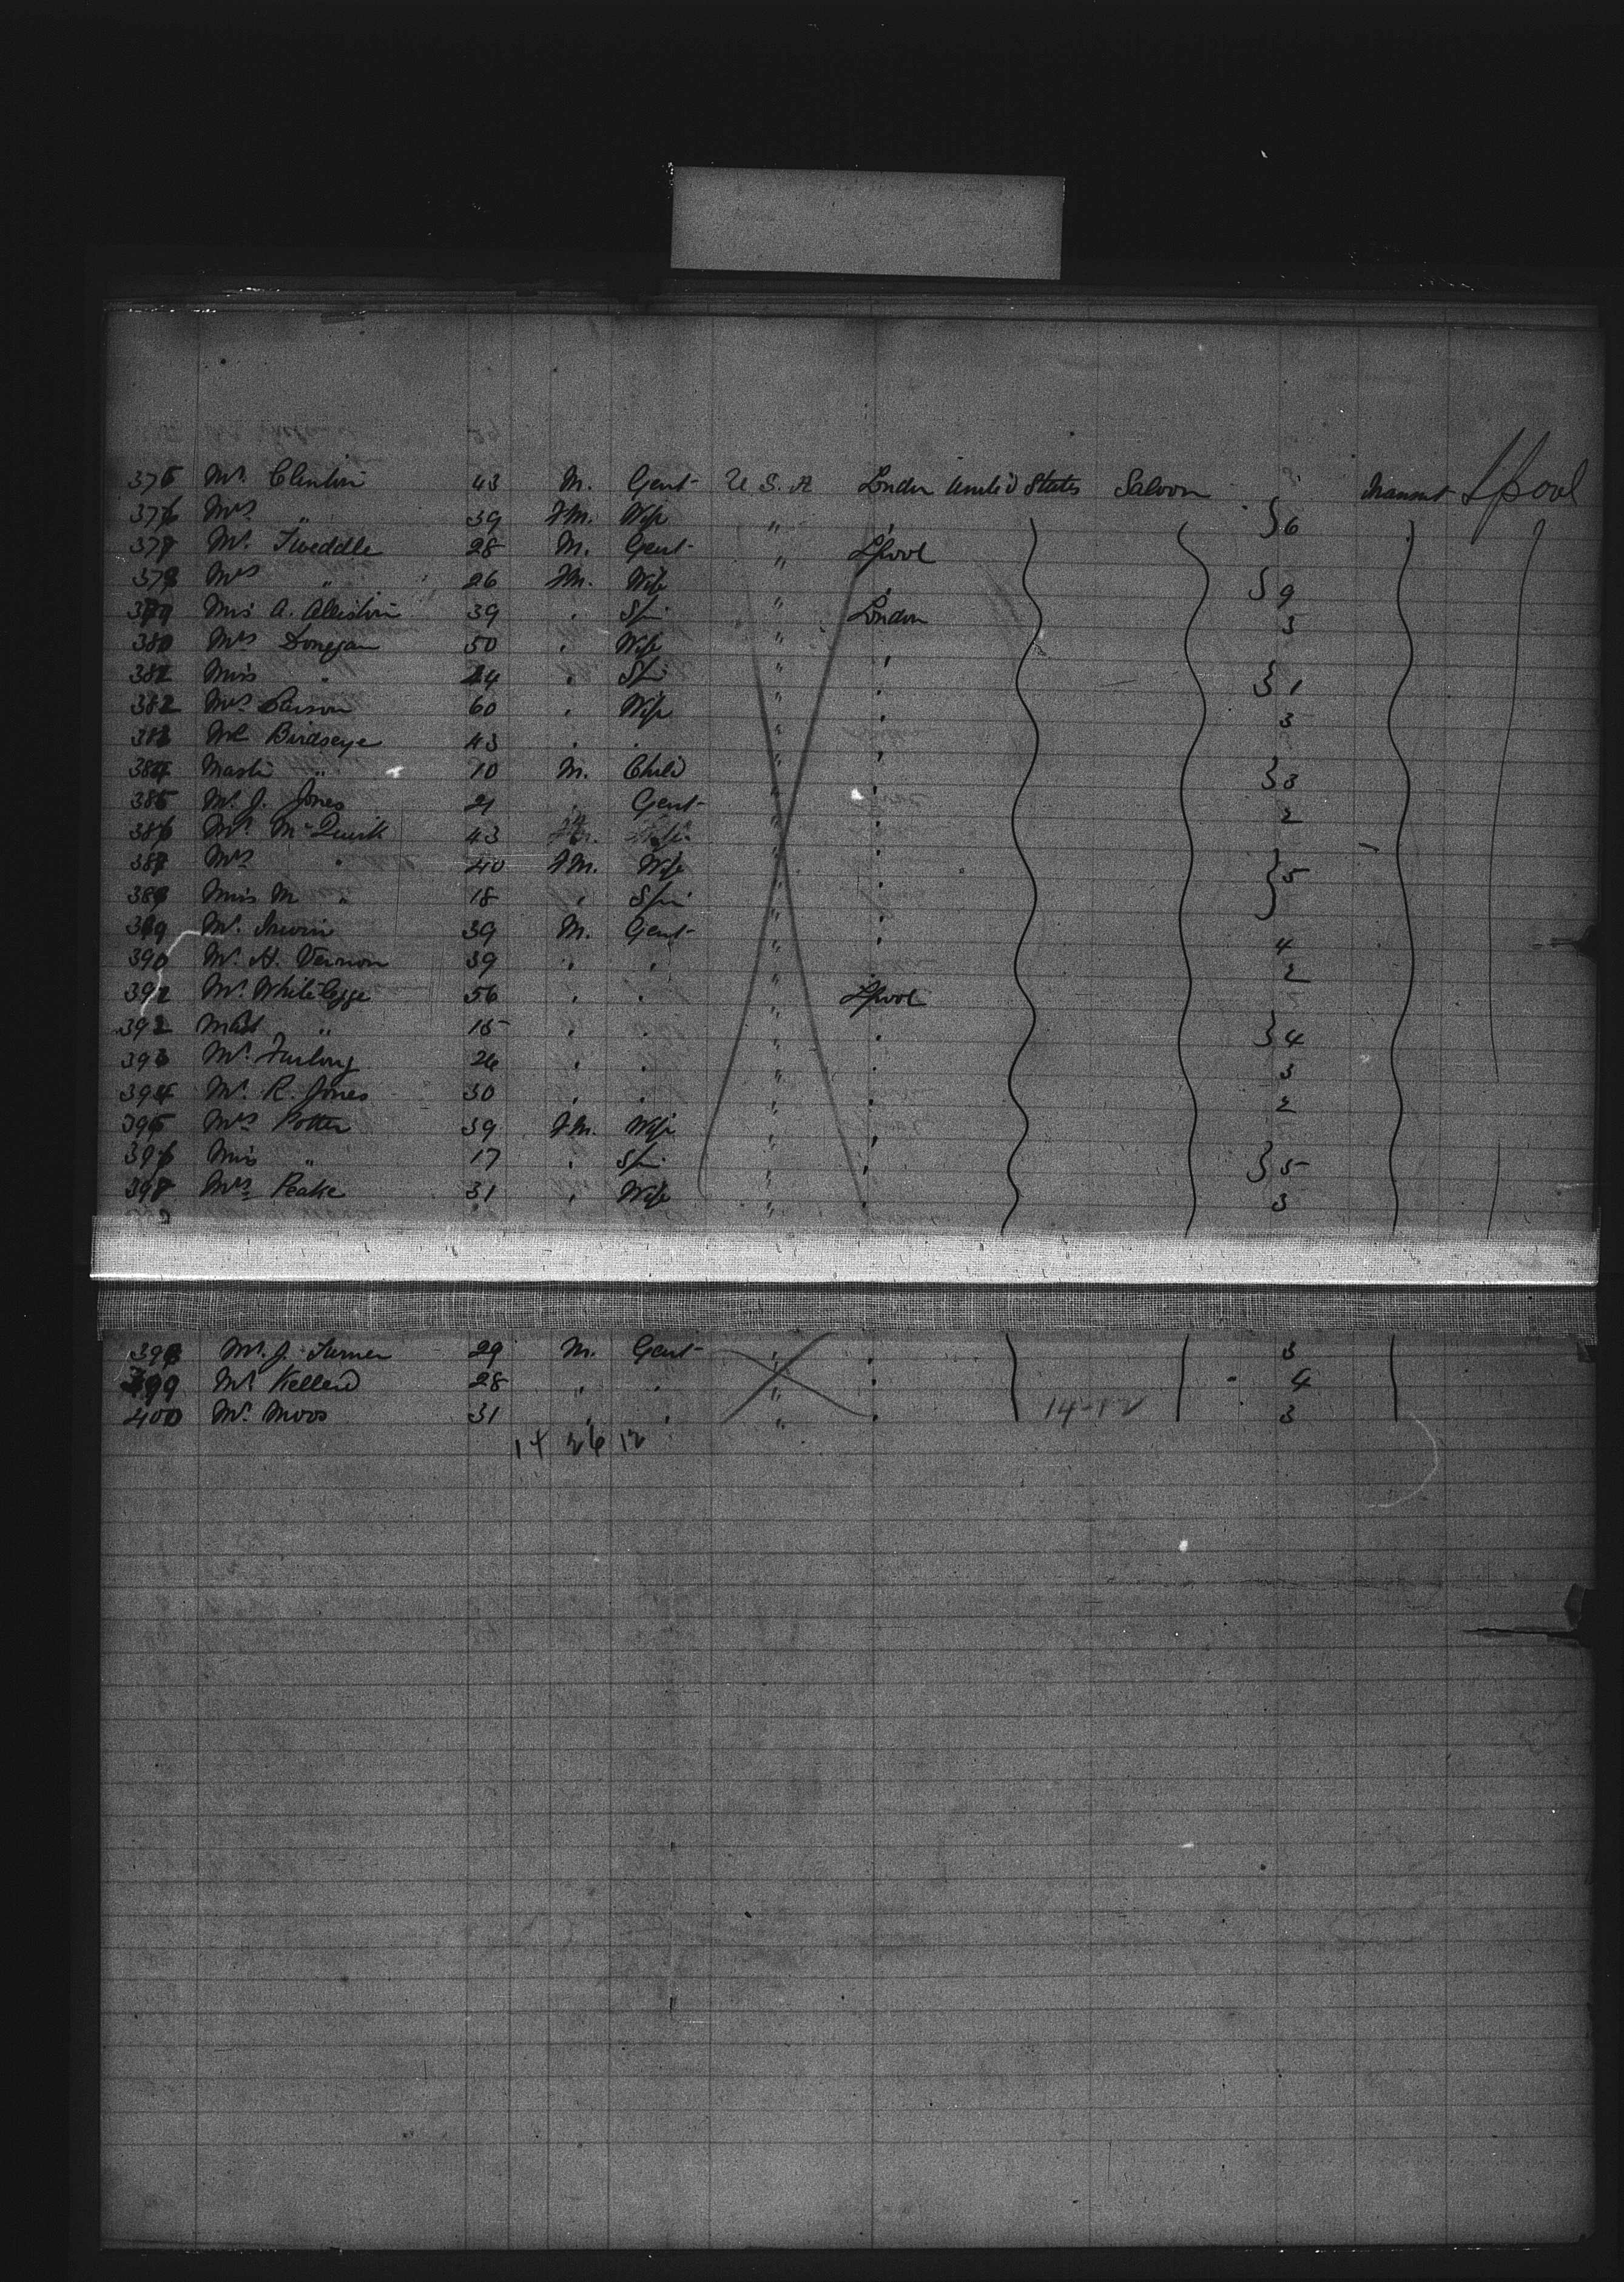 375 Mr. Clinton 43 M. Gent U.S.A London United States Saloon Transit Lpool
376 Mrs " 39 FM. Wife " " } 6
377 Mr. Tweddle 28 M. Gent " Lpool
378 Mrs " 26 FM. Wife " " } 9
379 Miss A. Allerton 39 " Spin " London 3
380 Mrs Donegan 50 " Wife " "
381 Miss " 24 " Spin " " } 1
382 Mrs Parson 60 " Wife " " 3
383 Mrs Birdseye 43 " " " "
384 Mastr " 10 M. Child " " } 3
385 Mr. J. Jones 21 " Gent " " 2
386 Mr. McQuirk 43 M. " "
387 Mrs " 40 FM. Wife " " } 5
388 Miss M " 18 " Spin " "
389 Mr. Irwin 39 M. Gent " " 4
390 Mr. H. Vernon 39 " " " " 2
391 Mr. Whitelegge 56 " " " Lpool
392 Mast " 15 " " " " } 4
393 Mr. Furlong 26 " " " " 3
394 Mr. R. Jones 30 " " " " 2
395 Mrs Potter 39 FM. Wife " "
396 Miss " 17 " Spin " " } 5
397 Mrs Peake 31 " Wife " " 3
398 Mr. J. Turner 29 M. Gent " " 3
399 Mr. Kellerd 28 " " " " 4
400 Mr. Moos 31 " " " " 14-12 3
14 26 12